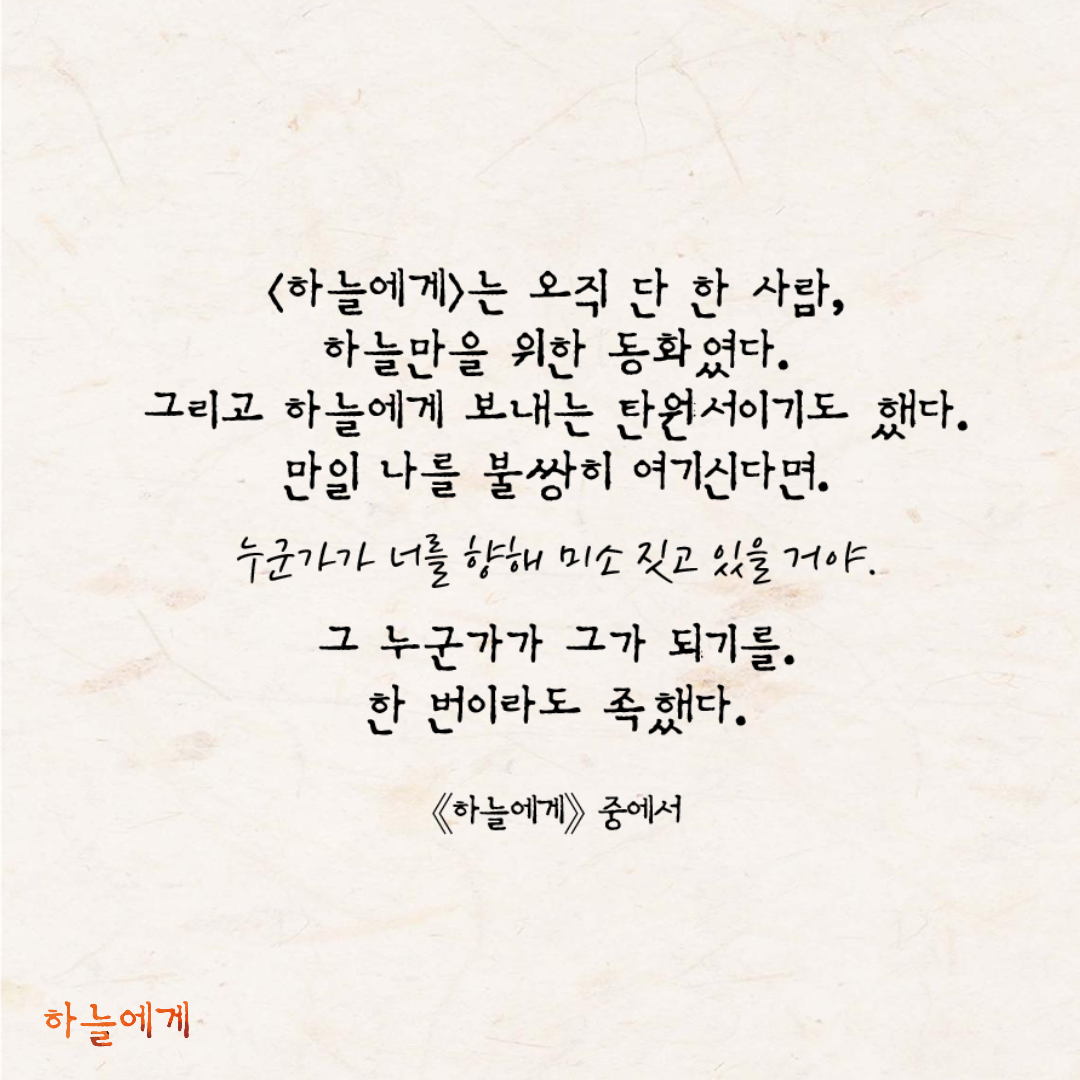 <하늘에게>는 오직 단 한 사람,
하늘만을 위한 동화였다.
그리고 하늘에게 보내는 탄원서이기도 했다.
만일 나를 불쌍히 여기신다면.
누군가가 너를 향해 미소 짓고 있을 거야.
그 누군가가 그가 되기를.
한 번이라도 족했다.
《하늘에게》 중에서
하늘에게